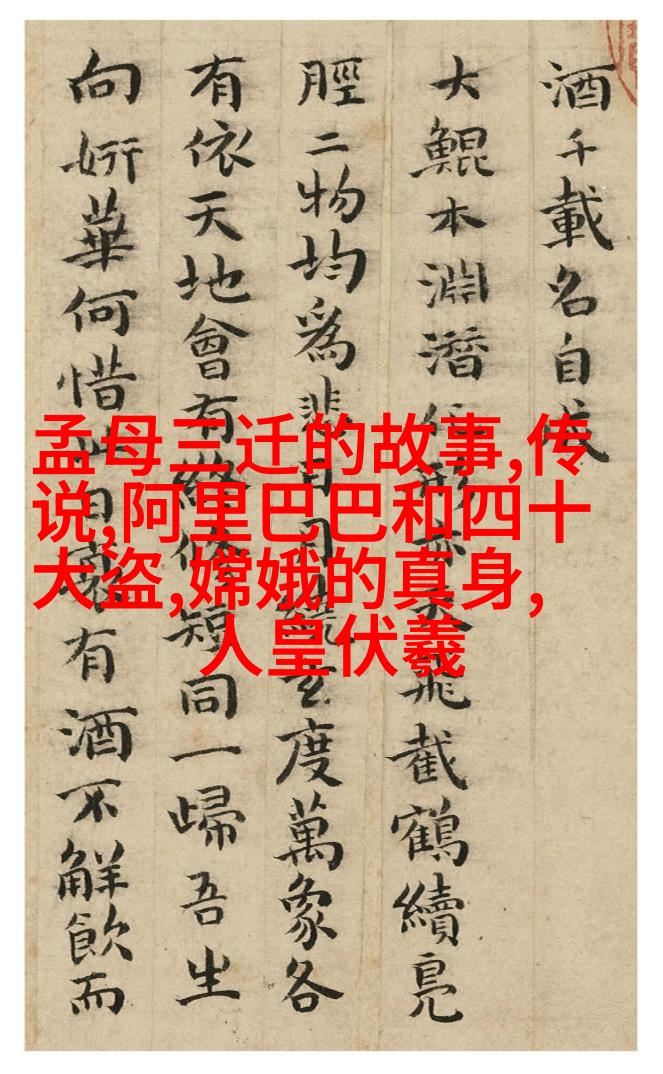 酒千載名自
大鯤本淵潛飛截鶴續鳧
脛二物均為悲玄度萬象各
有依天地會有終脩短同一歸吾生
向妍華何惜此日有酒不解飲而
孟母三迁的故事,传
说,阿里巴巴和四十
大盗,嫦娥的真身,
人皇伏羲